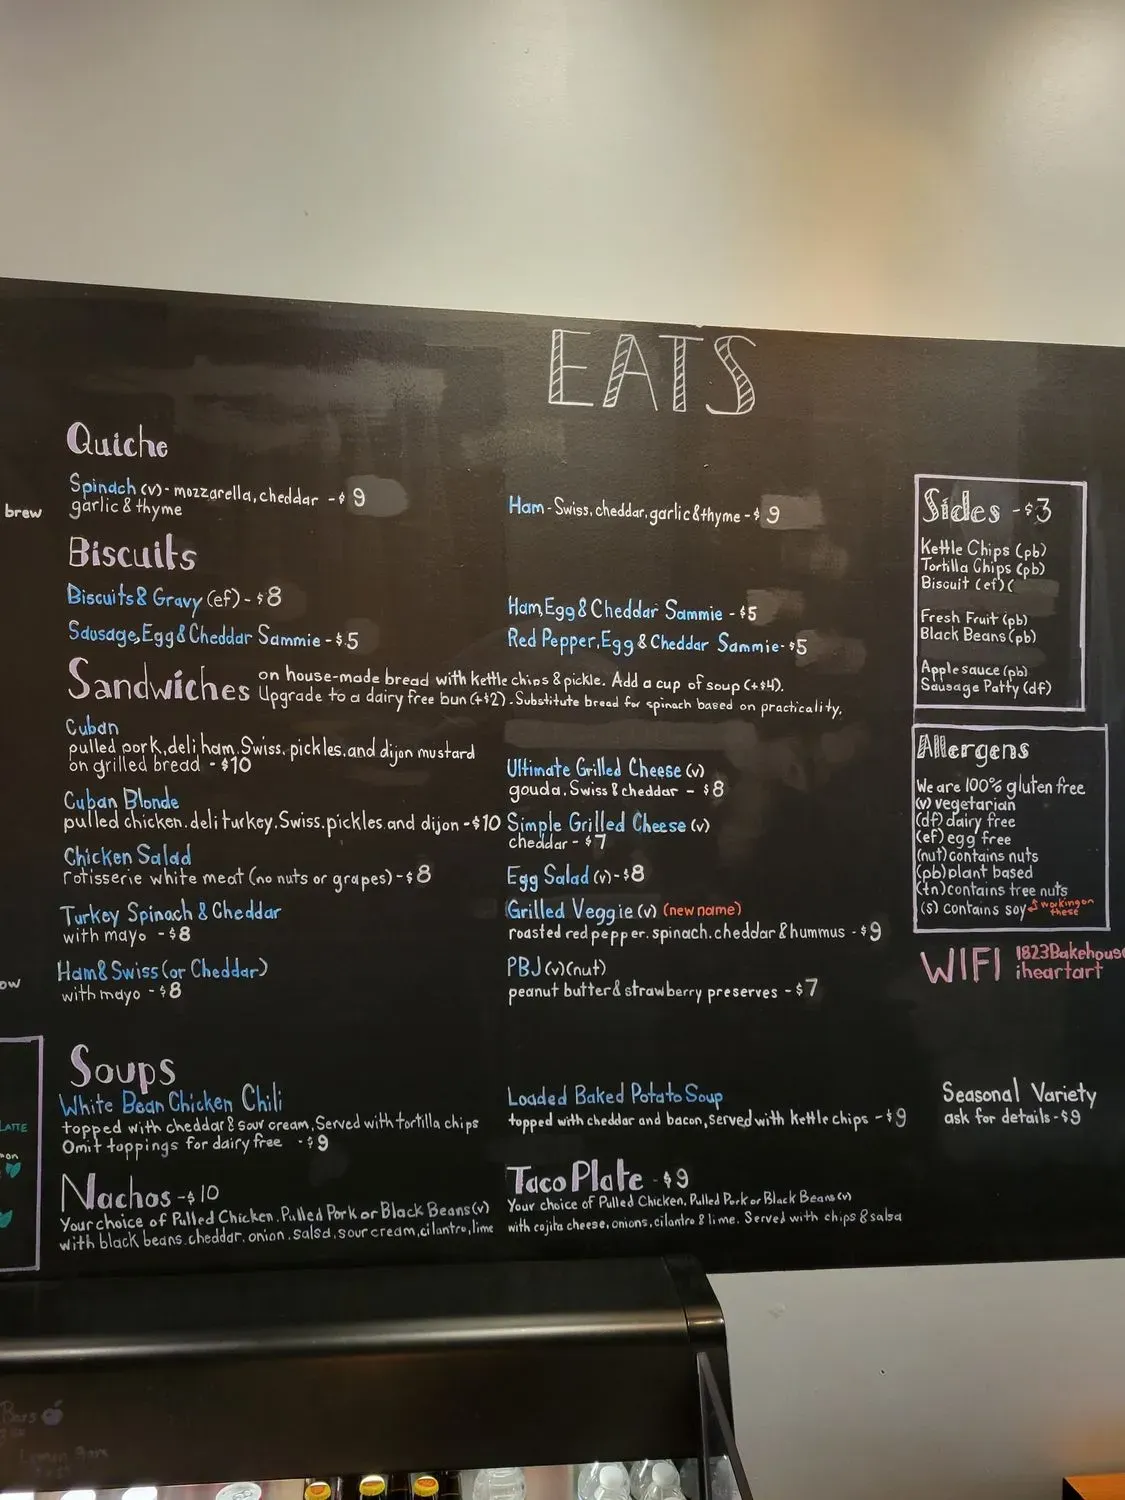 EATS
Quiche
Spinach (v) - mozzarella, cheddar - $9
garlic & thyme
Ham - Swiss, cheddar, garlic & thyme - $9
brew
Biscuits
Biscuits & Gravy (ef) - $8
Sausage, Egg & Cheddar Sammie - $5
Ham, Egg & Cheddar Sammie - $5
Red Pepper, Egg & Cheddar Sammie - $5
Sandwiches on house-made bread with kettle chips & pickle. Add a cup of soup (+$4).
Upgrade to a dairy free bun (+$2). Substitute bread for spinach based on practicality.
Cuban
pulled pork, deli ham, Swiss, pickles, and dijon mustard
on grilled bread - $10
Cuban Blonde
pulled chicken, deli turkey, Swiss, pickles, and dijon - $10
Chicken Salad
rotisserie white meat (no nuts or grapes) - $8
Turkey Spinach & Cheddar
with mayo - $8
Ham & Swiss (or Cheddar)
with mayo - $8
Ultimate Grilled Cheese (v)
gouda, Swiss & cheddar - $8
Simple Grilled Cheese (v)
cheddar - $7
Egg Salad (v) - $8
Grilled Veggie (v) (new name)
roasted red pepper, spinach, cheddar & hummus - $9
PBJ (v) (nut)
peanut butter & strawberry preserves - $7
ow
Soups
White Bean Chicken Chili
topped with cheddar & sour cream, Served with tortilla chips
Omit toppings for dairy free - $9
Loaded Baked Potato Soup
topped with cheddar and bacon, served with kettle chips - $9
Seasonal Variety
ask for details - $9
Nachos - $10
Your choice of Pulled Chicken, Pulled Pork or Black Beans (v)
with black beans, cheddar, onion, salsa, sour cream, cilantro, lime
Taco Plate - $9
Your choice of Pulled Chicken, Pulled Pork or Black Beans (v)
with cojita cheese, onions, cilantro & lime. Served with chips & salsa
Sides - $3
Kettle Chips (pb)
Tortilla Chips (pb)
Biscuit (ef) (
Fresh Fruit (pb)
Black Beans (pb)
Applesauce (pb)
Sausage Patty (df)
Allergens
We are 100% gluten free
(v) vegetarian
(df) dairy free
(ef) egg free
(nut) contains nuts
(pb) plant based
(tn) contains tree nuts
(s) contains soy
working on
these
WIFI
1823Bakehouse
iheartart
LATTE
Bars
Lemon Bars